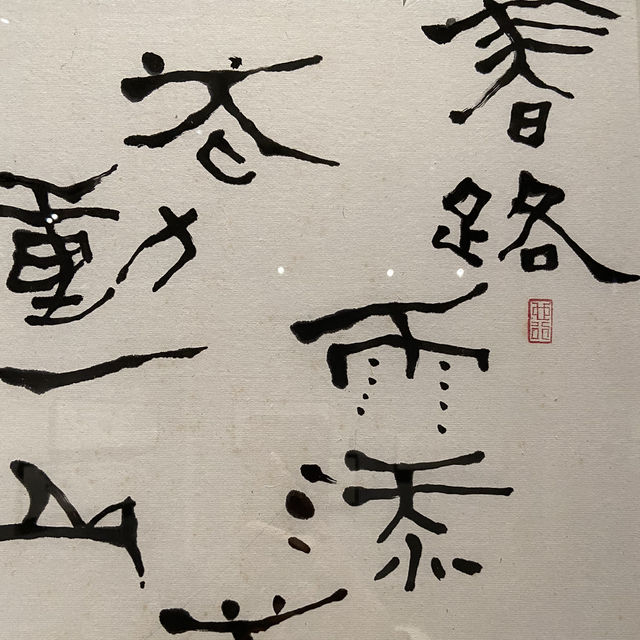 春路
雨添
花動一山